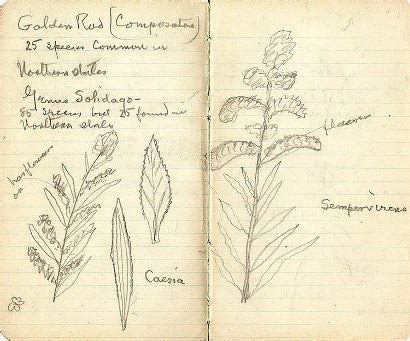 Golden Rod (Compositae)
25 species common in
Northern states
Genus Solidago-
85 species but 25 found in
Northern states
has flowers
on
Caesia
flowers
Sempervirens